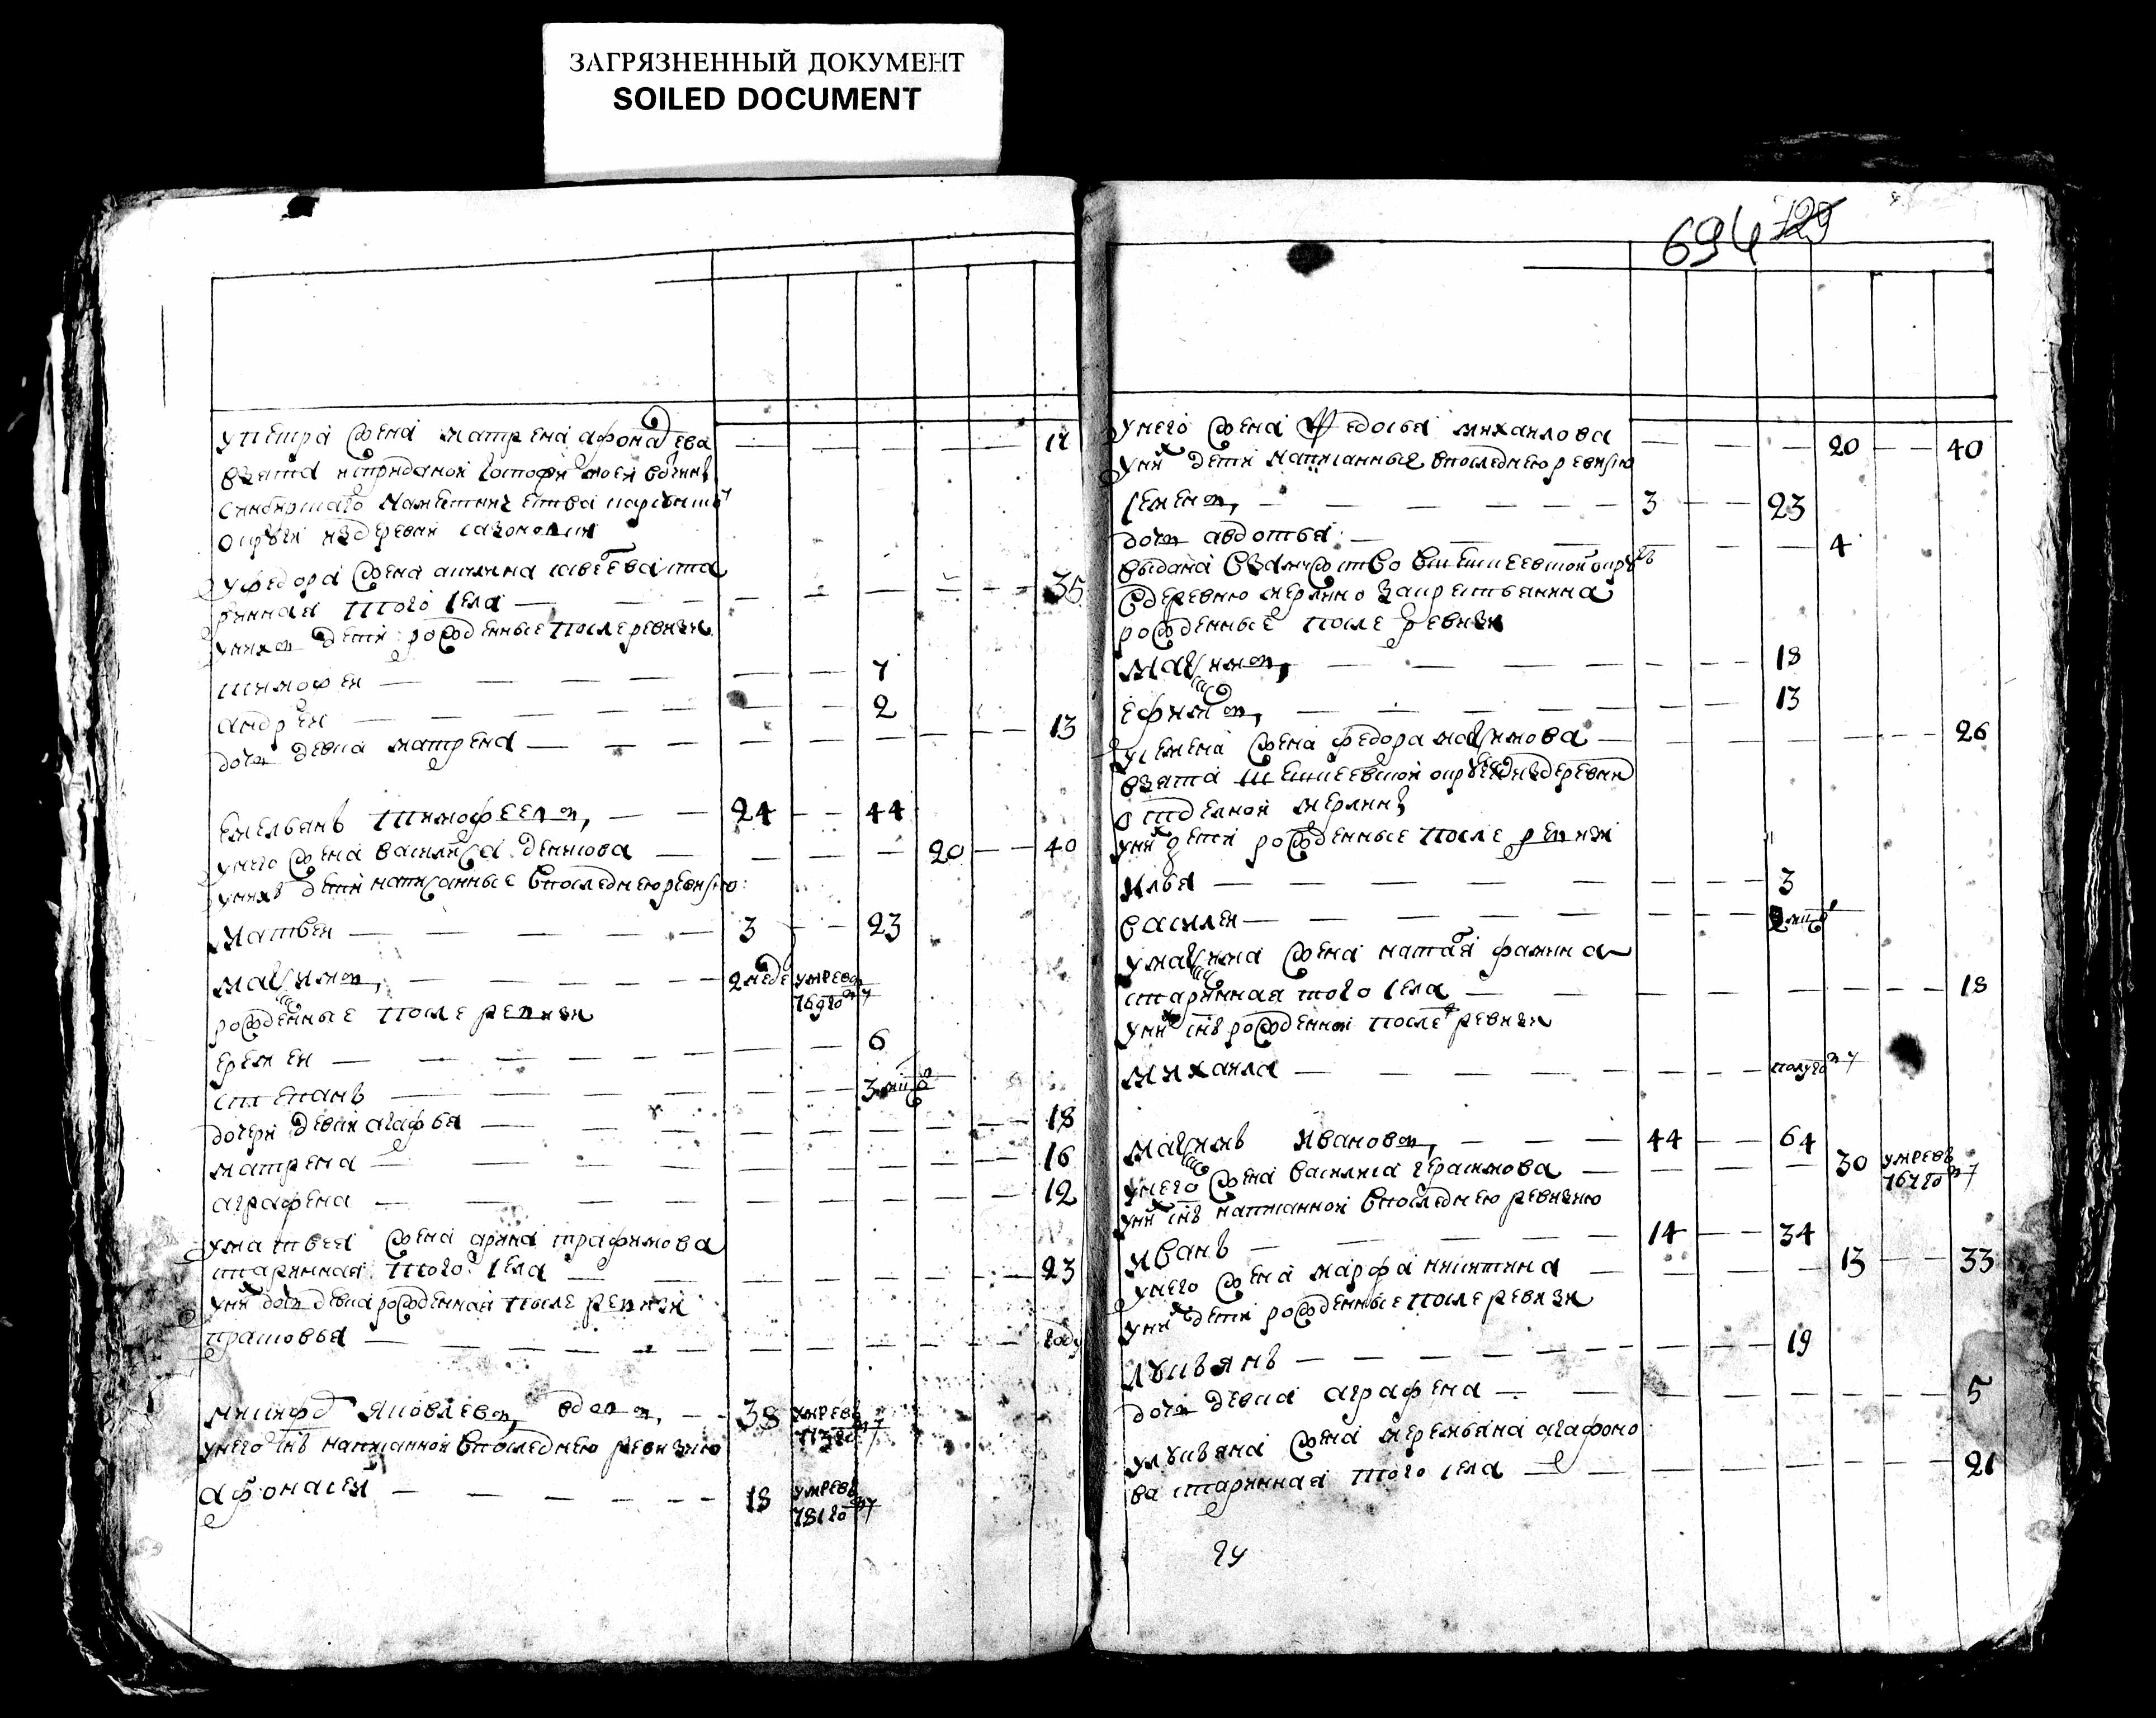 ЗАГРЯЗНЕННЫЙ ДОКУМЕНТ
SOILED DOCUMENT
у петра жена матрена афонасева — — — — — 17
взята
синбирскаго наместничества
округи из деревни
у федора жена акилина
ринная того села — — — — — 35
у них дети рожденные после ревизи
тимофеи — — — — 7
андреи — — — — 2
дочь девка матрена — — — — 13
емельянъ тимофеевъ, — — 24 — — 44
у него жена василиса денисова — — — — 20 — — 40
у нихъ дети написанные в последнею ревизию
матвеи — — — — 3 — — 23
максимъ, — — — — 2 неде умре въ
769 го
рожденные после ревизи
еремеи — — — — 6
степанъ — — — — 3 мцъ
дочери девки агафья — — — — 18
матрена — — — — 16
аграфена — — — — 12
у матвея жена арина трафимова
старинная того села — — — — 23
у них дочь девка рожденная после ревизи
прасковья — — — — году
никифоръ яковлевъ, вдовъ, — — 38 умре въ
773 го
у него снъ написанной в последнею ревизию
афонасеи — — — — 18 умре въ
781 го
694 129
у него жена федосья михаилова — — — 20 — — 40
у них дети написанные в последнею ревизию
семенъ, — — — — 3 — — 23
дочь авдотья — — — — 4
выдана в замужство в
в деревню мерлино за крестьянина
рожденные после ревизи
максимъ, — — — — 18
ефимъ, — — — — 13
у семена жена федора максимова — — — — 26
взята из деревни
отделной мерлин
у них дети рожденные после ревизи
илья — — — — 3
василеи — — — — 2 мцъ
у максима жена фомина
старинная того села — — — — 18
у них снъ рожденной после ревизи
михаила — — — — полуго
максимъ ивановъ, — — — 44 — — 64
у него жена василиса герасимова — — — — 30 умре въ
767 го
у них снъ написанной в последнею ревизию
иванъ — — — — 14 — — 34
у него жена марфа никитина — — — — 13 — — 33
у них дети рожденные после ревизи
лукьянъ — — — — 19
дочь девка аграфена — — — — 5
у лукьяна жена меремьяна агафоно
ва старинная того села — — — — 21